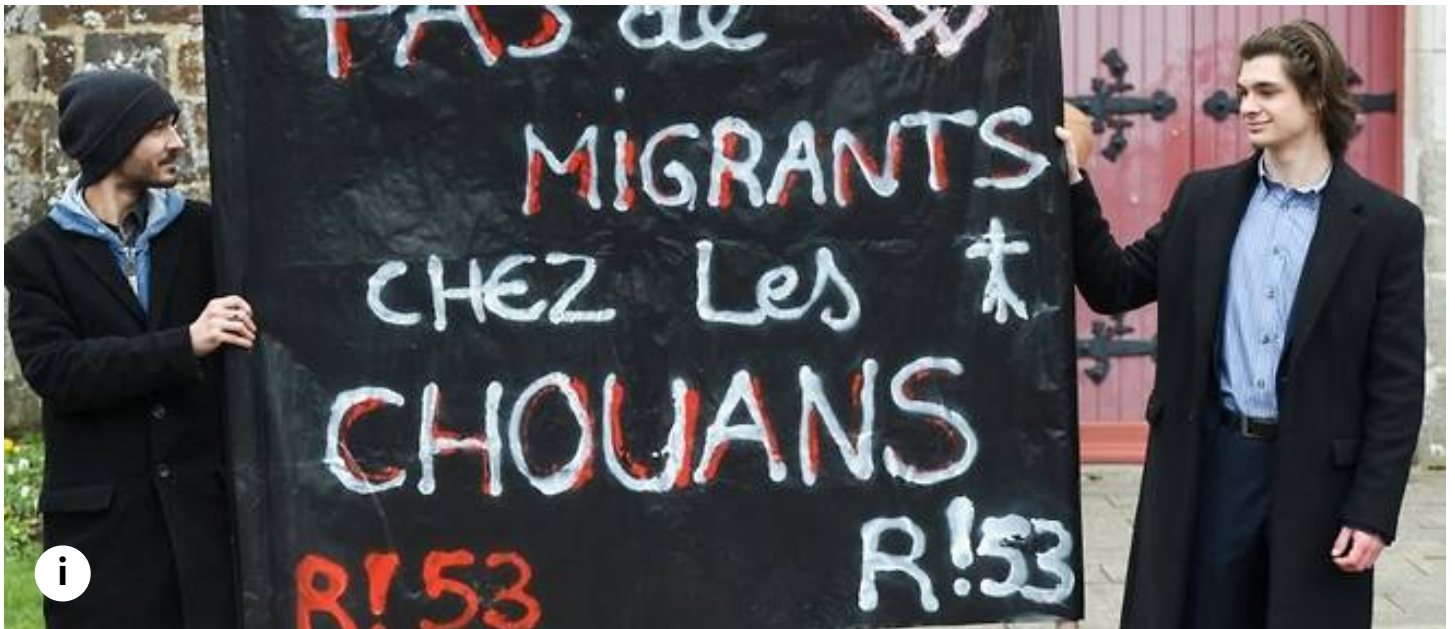 PAS de
MiGRANTS
CHEZ Les
CHOUANS
R!53
R!53
i